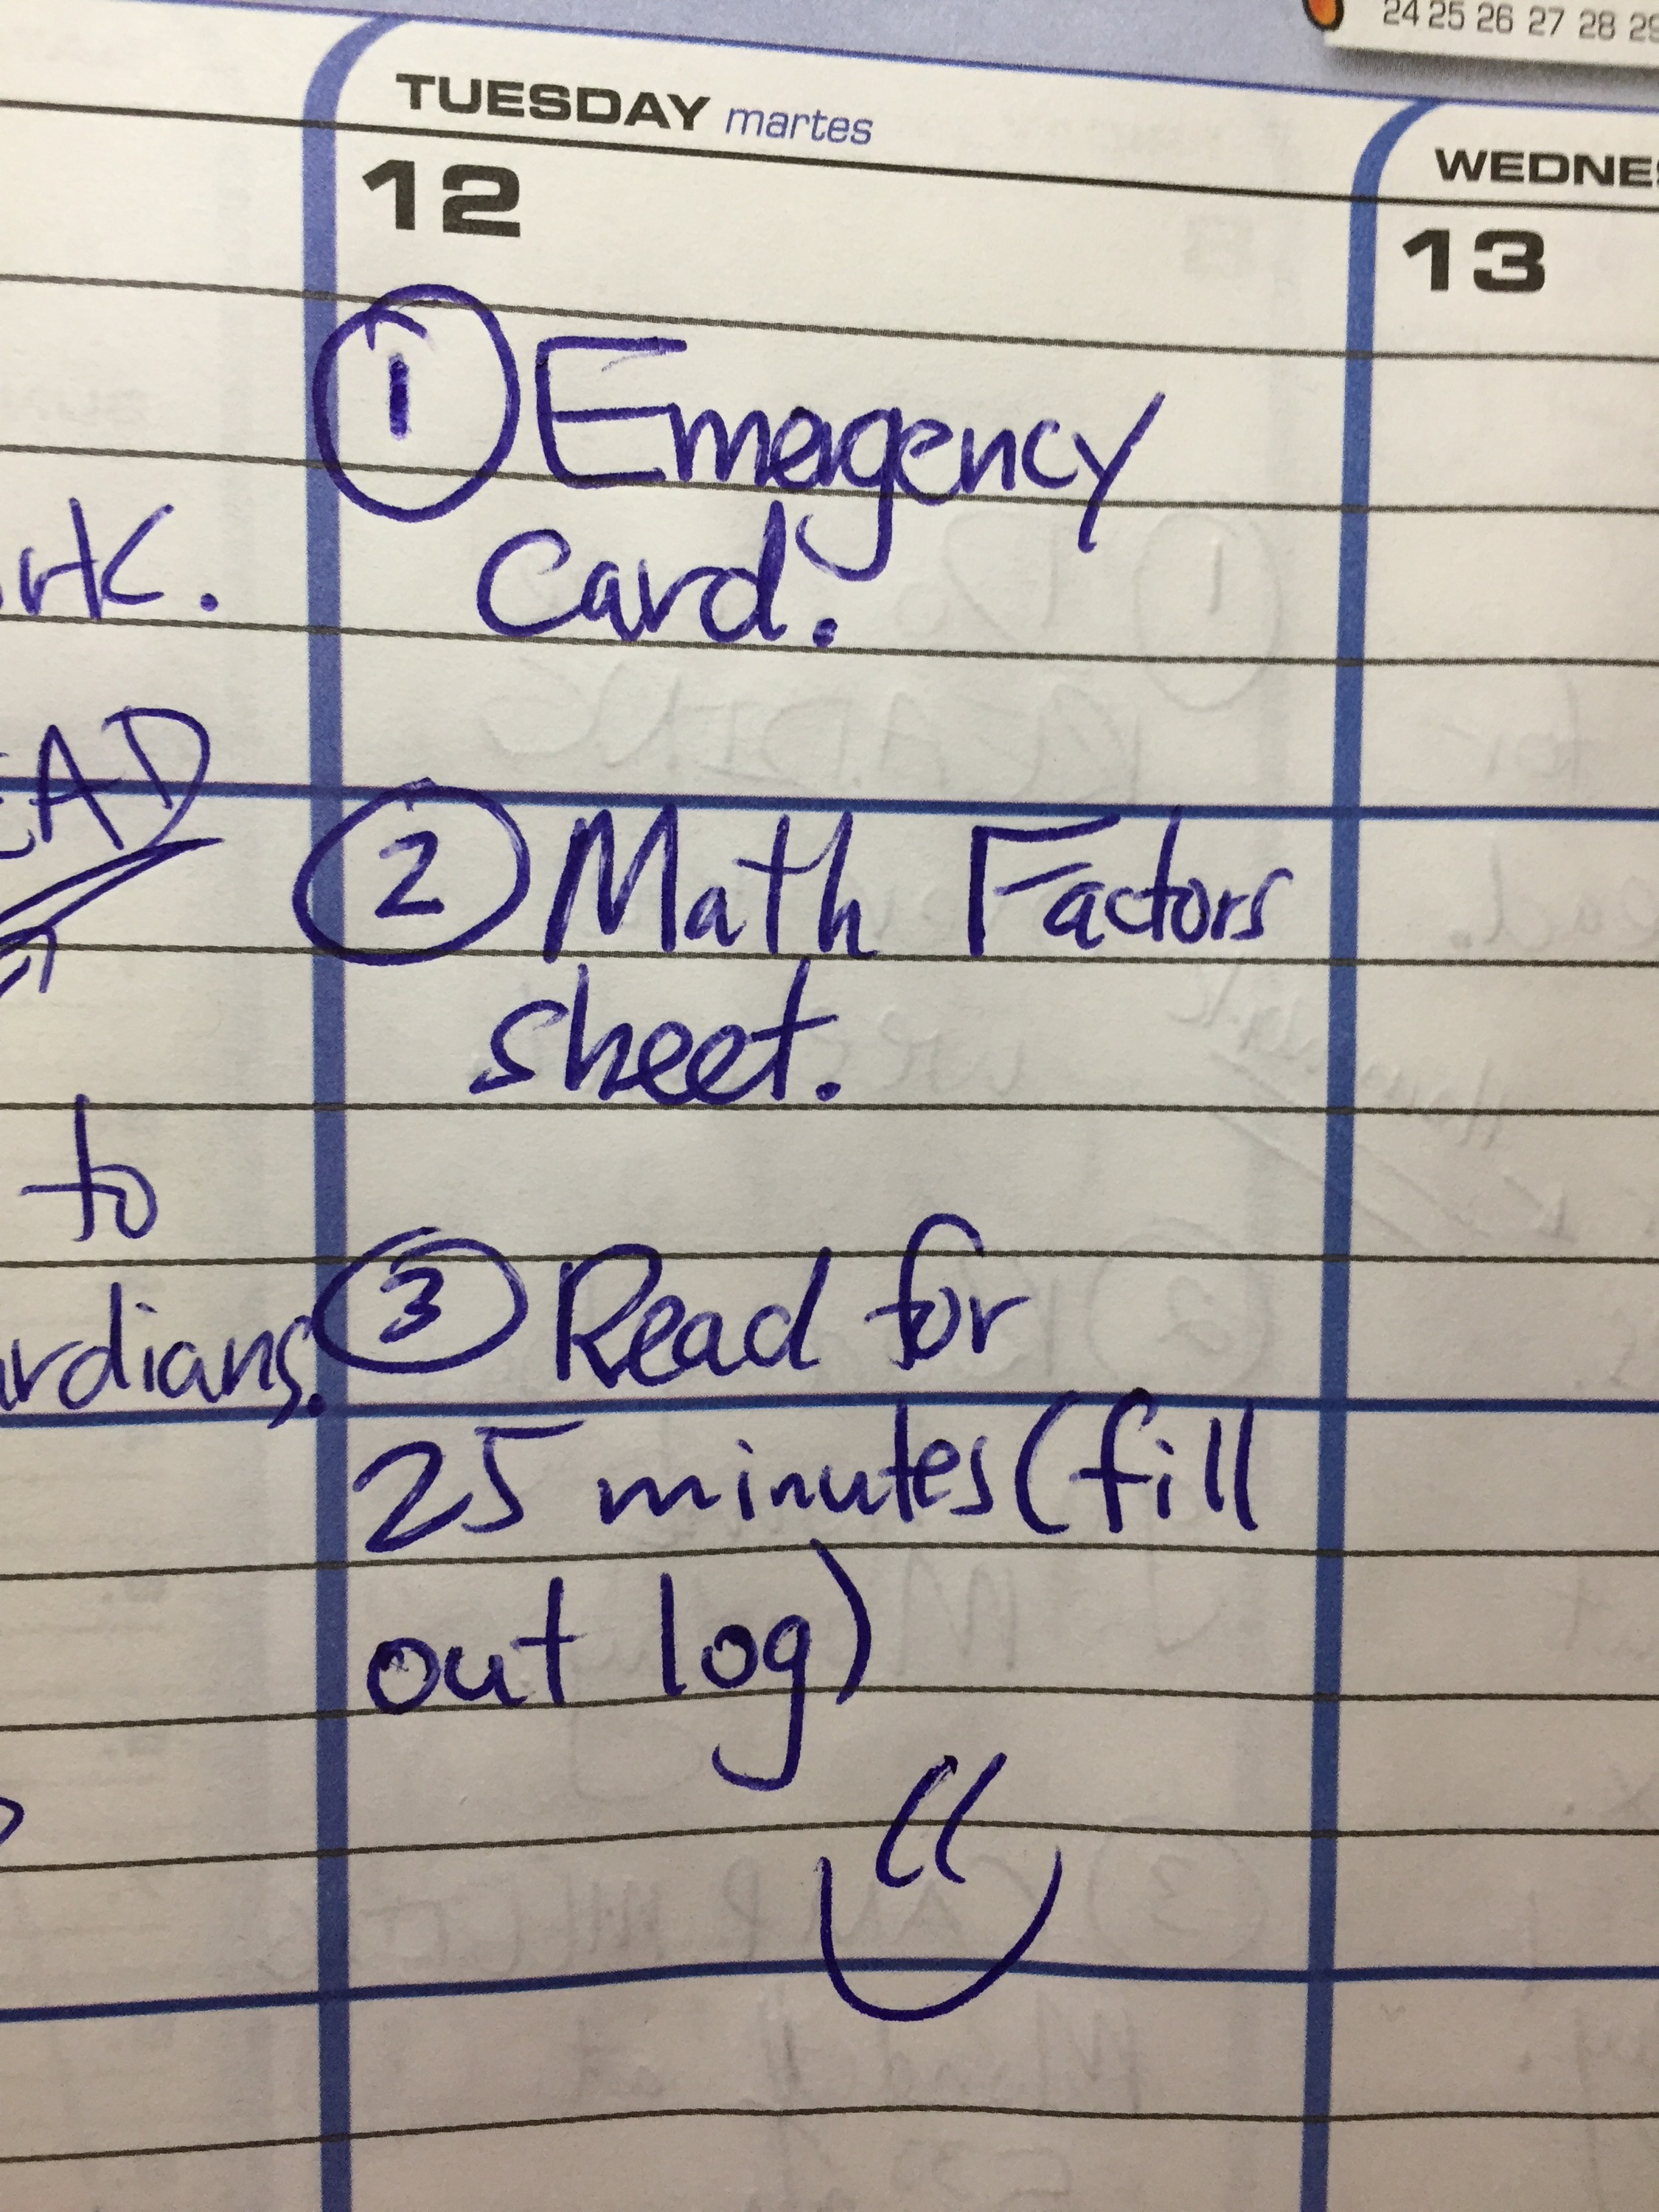 24 25 26 27 28 29
TUESDAY martes
12
① Emergency
Card.
② Math Factors
sheet.
③ Read for
25 minutes (fill
out log)
to
13